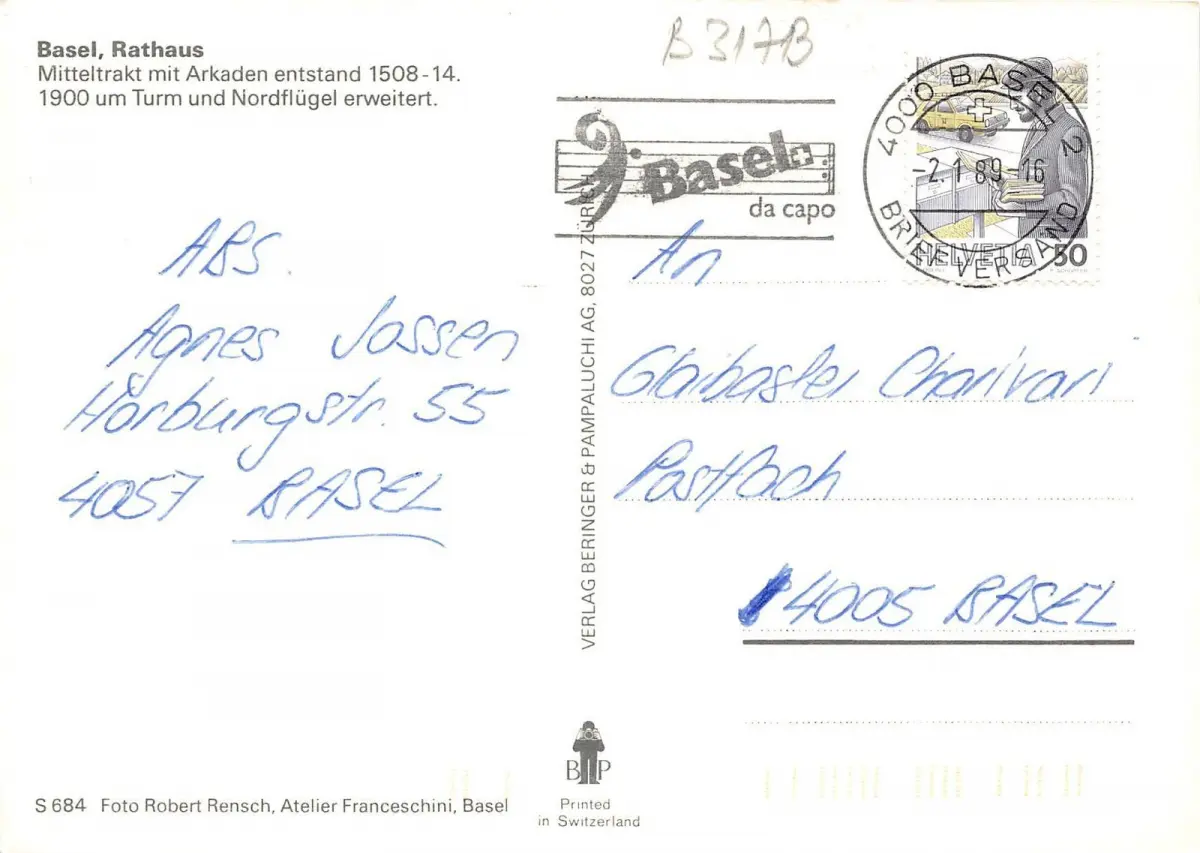 B 317B
Basel, Rathaus
Mitteltrakt mit Arkaden entstand 1508-14.
1900 um Turm und Nordflügel erweitert.
Basel
da capo
4000 BASEL 2
-2.1.89-16
BRIEFVERSAND
HELVETIA 50
ABS.
Agnes Jossen
Horburgstr. 55
4057 BASEL
VERLAG BERINGER & PAMPALUCHI AG, 8027 ZÜRICH
An
Glaibasler Charivari
Postfach
4005 BASEL
S 684 Foto Robert Rensch, Atelier Franceschini, Basel
B P
Printed
in Switzerland